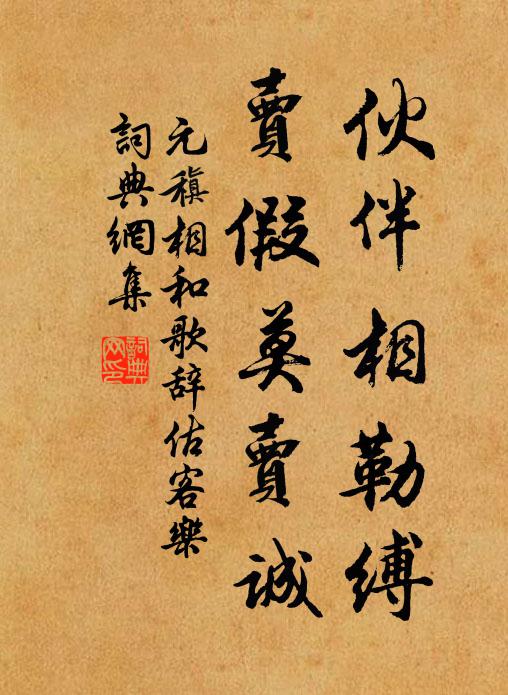 伙伴相勒縛
賣假莫賣誠
元稹相和歌辞估客樂
詞典網集
詞典網印